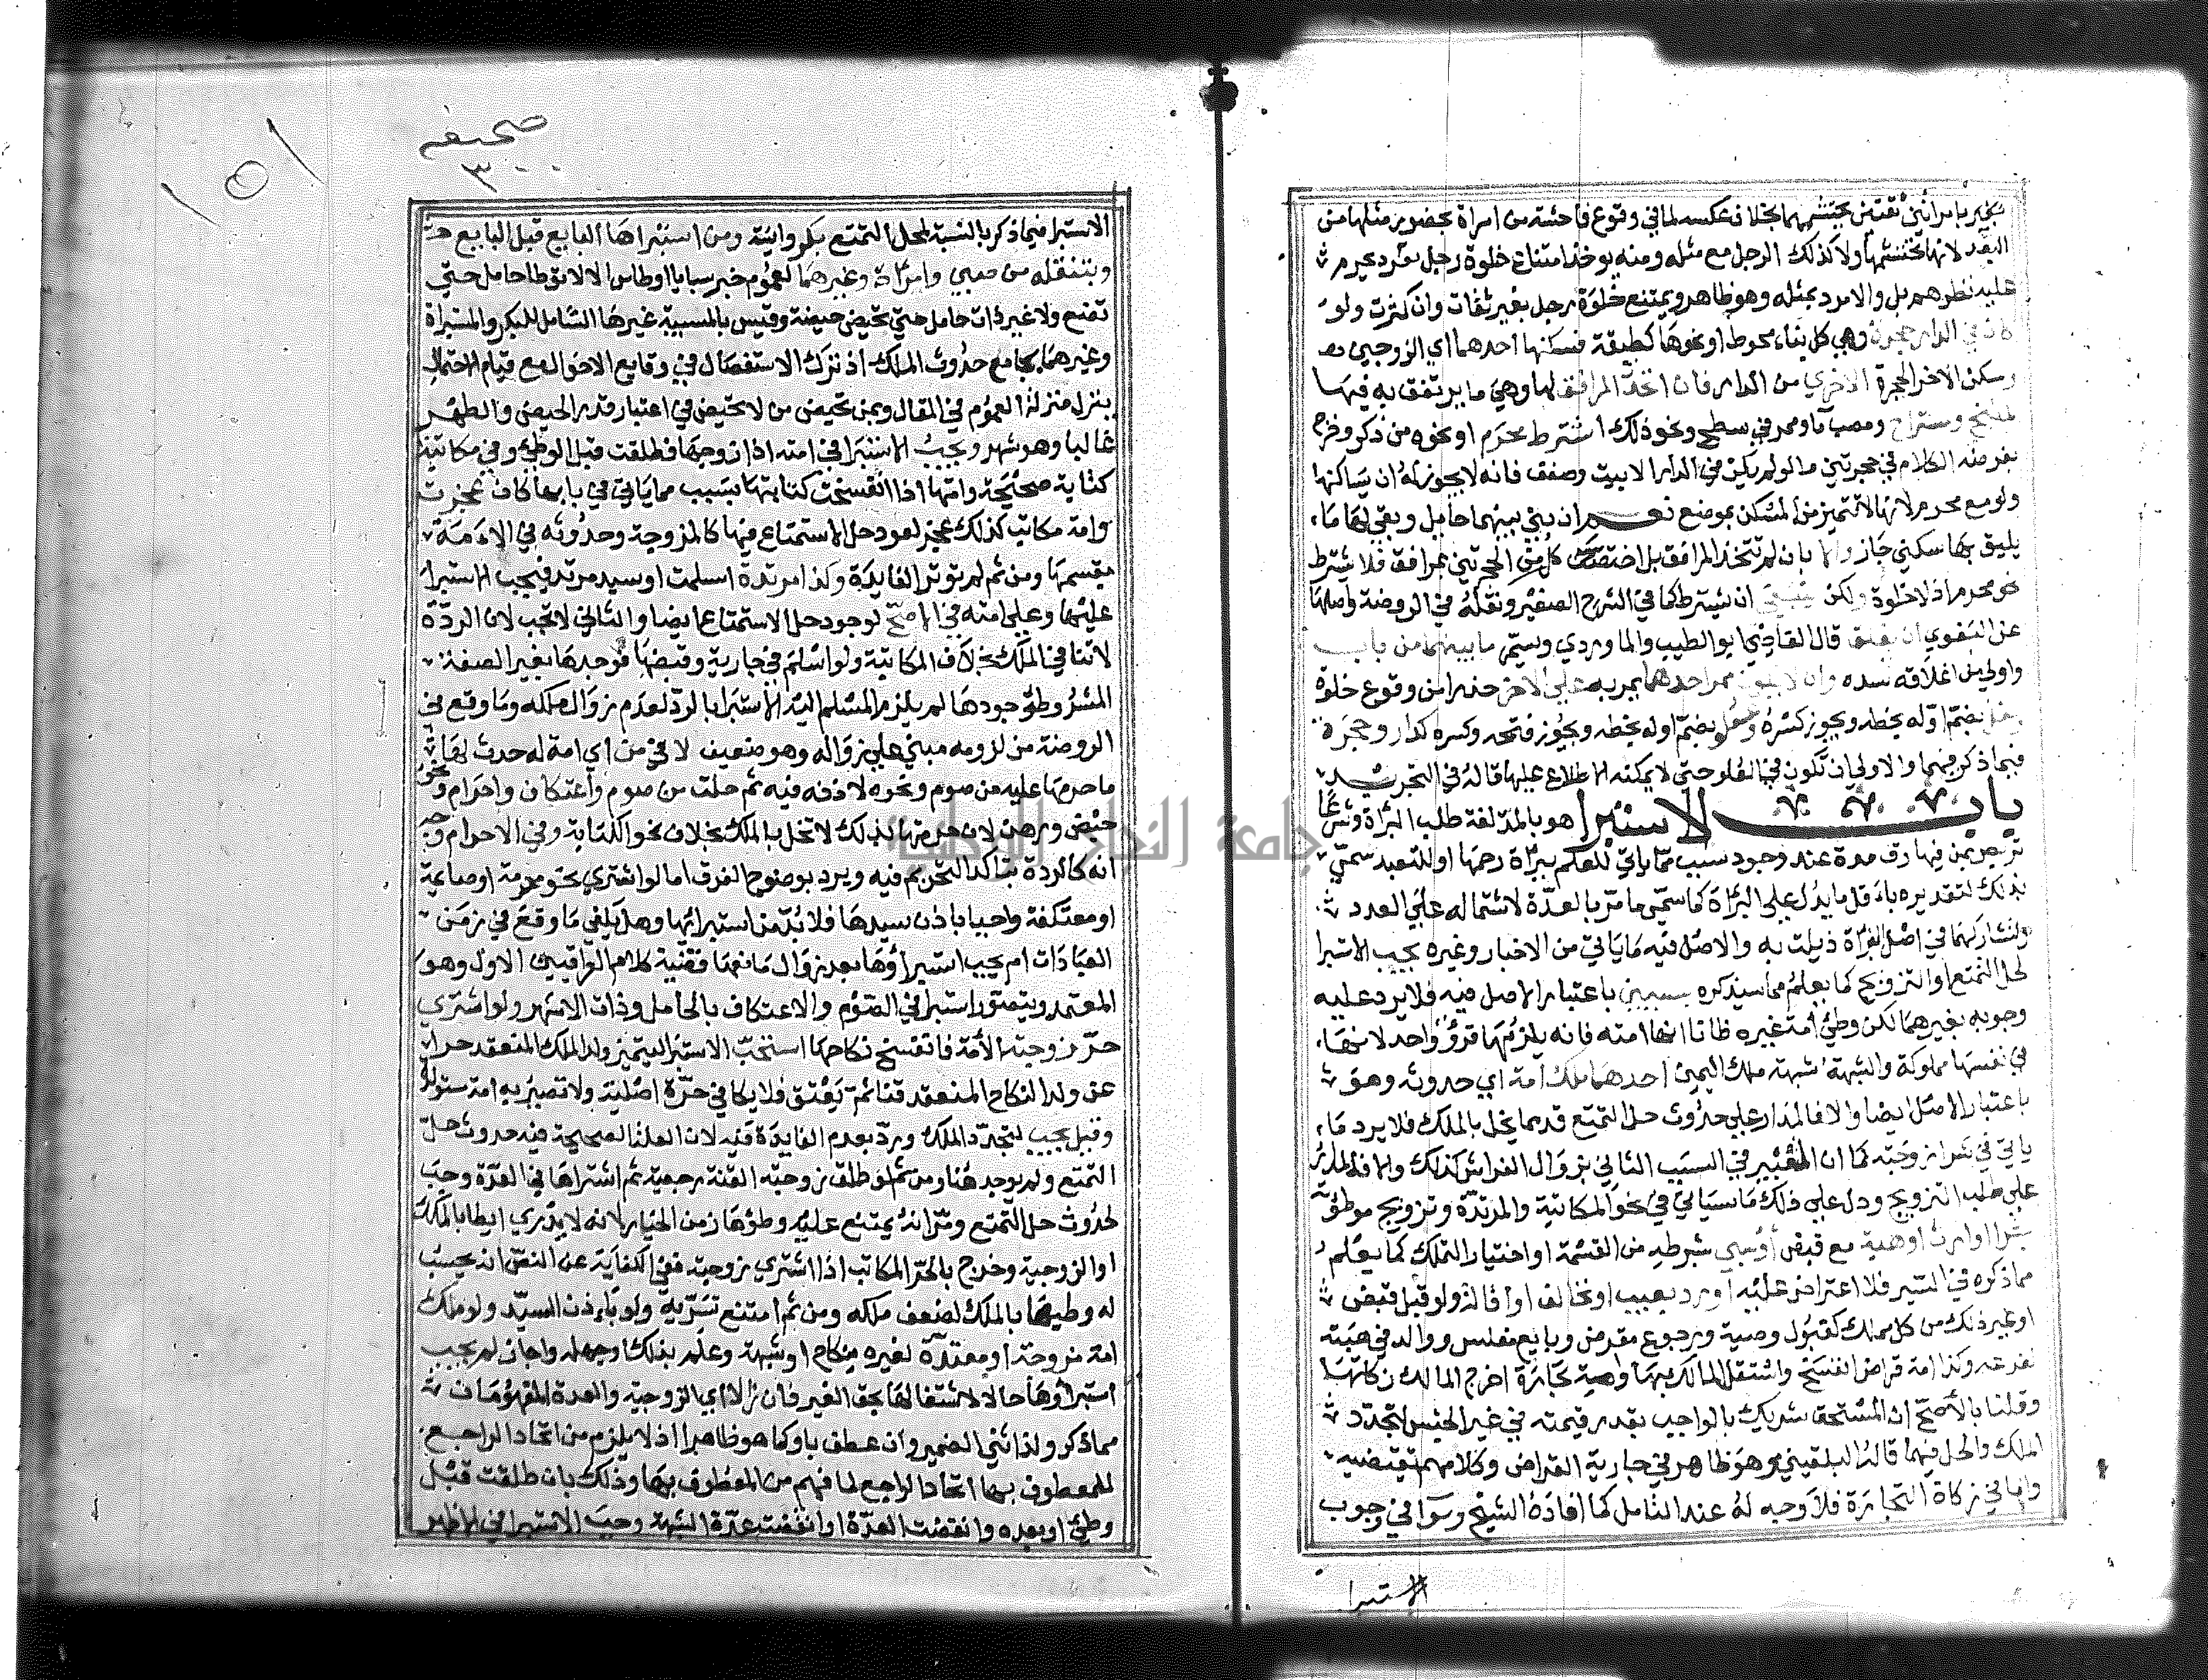 بغير بامراتين ثقتين يحتشمهما بخلاف عكسه لما في وقوع فاحشة من امراة بحضور مثلها من
البعد لانها تحتشمها ولا كذلك الرجل مع مثله ومنه يوخذ امتناع خلوة رجل بمرد يحرم
عليه نظرهم بل والامرد بمثله وهو ظاهر ويمتنع خلوة رجل بغير ثقات وان كثرت ولو
كان في الدار حجرة وهي كل بناء محوط او نحوها كطبقة فسكنها احدهما اي الزوجين
وسكن الاخر الحجرة الاخري من الدار فان اتحد المرافق لها وهي ما يرتفق به فيها
كمطبخ ومستراح ومصب ما وممر في سطح ونحو ذلك اشترط محرم او نحوه من ذكر وخرج
بفرضه الكلام في حجرتين ما لو لم يكن في الدار الا بيت وصفف فانه لا يجوز له ان يساكنها
ولو مع محرم لانها لا تتميز من المسكن بموضع نعم ان بني بينهما حايل وبقي لها ما
يليق بها سكني جاز والا بان لم تتخذ المرافق بل اختصت كل من الحجرتين بمرافق فلا يشترط
نحو محرم اذ لا خلوة ولكن ينبغي ان يشترط كما في الشرح الصغير ونقله في الروضة واصلها
عن البغوي ان يغلق قال القاضي ابو الطيب والماوردي ويسمر ما بينهما من باب
واولي من اغلاقه سده وان لا يكون ممر احدهما يمر به علي الاخر حذرا من وقوع خلوة
بضم اوله بخطه ويجوز كسره وسفل بضم اوله بخطه ويجوز فتحه وكسره كدار وحجرة
فيما ذكر فيهما والاولي ان تكون في العلو حتي لا يمكنه الاطلاع عليها قاله في التجريد
باب الاستبرا هو بالمد لغة طلب البراة وشرعا
تربص بمن فيها رق مدة عند وجود سبب مما ياتي للعلم ببراة رحمها او للتعبد سمي
بذلك لتقديره باقل ما يدل علي البراة كما سمي ما مر بالعدة لاشتماله علي العدد
ولتشاركهما في اصل البراة ذيلت به والاصل فيه ما ياتي من الاخبار وغيره يجب الاستبرا
لحل التمتع او التزويج كما يعلم مما سيذكره بسببين باعتبار الاصل فيه فلا يرد عليه
وجوبه بغيرهما لكن وطئ امة غيره ظانا انها امته فانه يلزمها قرؤ واحد لانها
في نفسها مملوكة والشبهة شبهة ملك اليمين احدهما ملك امة اي حدوثه وهو
باعتبار الاصل ايضا والا فالمدار علي حدوث حل التمتع قدما يخل بالملك فلا يرد ما
ياتي في شرا زوجته كما ان التعبير في السبب الثاني بزوال الفراش كذلك والا فالمدار
علي طلب التزويج ودل علي ذلك ما سياتي في نحو المكاتبة والمرتدة وتزويج موطؤته
بشرا او ارث او هبة مع قبض او سبي بشرطه من القسمة او اختيار التملك كما يعلم
مما ذكره في السير فلا اعتراض عليه او رد بعيب او تحالف او اقالة ولو قبل قبض
او غير ذلك من كل مملك كقبول وصية ورجوع مقرض وبايع مفلس ووالد في هبته
لفرعه وكذا امة قراض انفسخ واشتغل المالك بها وامة تجارة اخرج المالك زكاتها
وقلنا بالاصح ان المستحق شريك بالواجب بقدر قيمته في غير الجنس لتجدد
الملك والحل فيهما قاله البلقيني وهو ظاهر في جارية القراض وكلامهم يقتضيه
واما في زكاة التجارة فلا وجه له عند التامل كما افاده الشيخ وسوا في وجوب
الاستبرا
صحيفه
٣٠٠
١٥١
الاستبرا فيما ذكر بالنسبة لحل التمتع بكر وايسة ومن استبراها البايع قبل البيع
وبتنقله من صبي وامراة وغيرهما لعموم خبر سبايا اوطاس الا لا توطا حامل حتي
تضع ولا غير ذات حامل حتي تحيض حيضة وقيس بالمسبية غيرها الشامل للبكر والمستبراة
وغيرهما بجامع حدوث الملك اذ ترك الاستفصال في وقايع الاحوال مع قيام الاحتمال
ينزل منزلة العموم في المقال وبمن تحيض من لا تحيض في اعتبار قدر الحيض والطهر
غالبا وهو شهر ويجب الاستبرا في امته اذا زوجها فطلقت قبل الوطئ وفي مكاتبة
كتابة صحيحة وامتها اذا انفسخت كتابتها بسبب مما ياتي في بابها كان عجزت
وامة مكاتب كذلك عجز لعود حل الاستمتاع فيها كالمزوجة وحدوثه في الامة
بقسميها ومن ثم لم توثر الفايدة وكذا مرتدة اسلمت او سيد مرتد فيجب الاستبرا
عليها وعلي امته في الاصح لوجود حل الاستمتاع ايضا والثاني لا تجب لان الردة
لا تنافي الملك بخلاف المكاتبة ولو اسلم في جارية وقبضها فوجدها بغير الصفة
المشروط وجودها لم يلزم المسلم اليه الاستبرا بالرد لعدم زوال ملكه وما وقع في
الروضة من لزومه مبني علي زواله وهو ضعيف لا في من اي امة له حدث لها
ما حرمها عليه من صوم ونحوه لاذنه فيه ثم حلت من صوم واعتكاف واحرام ونحو
حيض ورهن لان حرمتها بذلك لا تخل بالملك بخلاف نحو الكتابة وفي الاحرام وجه
انه كالردة بتاكد التحريم فيه ويرد بوضوح الفرق اما لو اشتري نحو محرمة او صايمة
او معتكفة واجبا باذن سيدها فلا بد من استبرايها وهل يكفي ما وقع في زمن
العبادات ام يجب استبراؤها بعد زوال مانعها قضية كلام العراقيين الاول وهو
المعتمد ويتصور استبرا في الصوم والاعتكاف بالحامل وذات الاشهر ولو اشتري
حر زوجته الامة فانفسخ نكاحها استحب الاستبرا ليتميز ولد الملك المنعقد حرا
عن ولد النكاح المنعقد قنا ثم يعتق فلا يكافي حرة اصلية ولا تصير به امة مستولدة
وقيل يجب لتجدد الملك ورد بعدم الفايدة فيه لان العلة الصحيحة فيه حدوث حل
التمتع ولم يوجد هنا ومن ثم لو طلق زوجته القنة رجعية ثم اشتراها في العدة وجب
لحدوث حل التمتع ومر انه يمتنع عليه وطؤها زمن الخيار لانه لا يدري ايطا بالملك
او الزوجية وخرج بالحر المكاتب اذا اشتري زوجته ففي الكفاية عن النص انه يحسب
له وطيها بالملك لضعف ملكه ومن ثم امتنع تسريه ولو باذن السيد ولو ملك
امة مزوجة او معتدة لغيره بنكاح او شبهة وعلم بذلك او جهله واجاز لم يجب
استبراؤها حالا لاشتغالها بحق الغير فان زالا اي الزوجية والعدة المفهومان
مما ذكر ولذا ثني الضمير وان عطف باو كما هو ظاهر اذ لا يلزم من اتحاد الراجع
للمعطوف بها اتحاد الراجع لما فهم من المعطوف بها وذلك بان طلقت قبل
وطئ او بعده وانقضت العدة او انقضت عدة الشبهة وجب الاستبرا في الاظهر
جامعة النجاح الوطنية